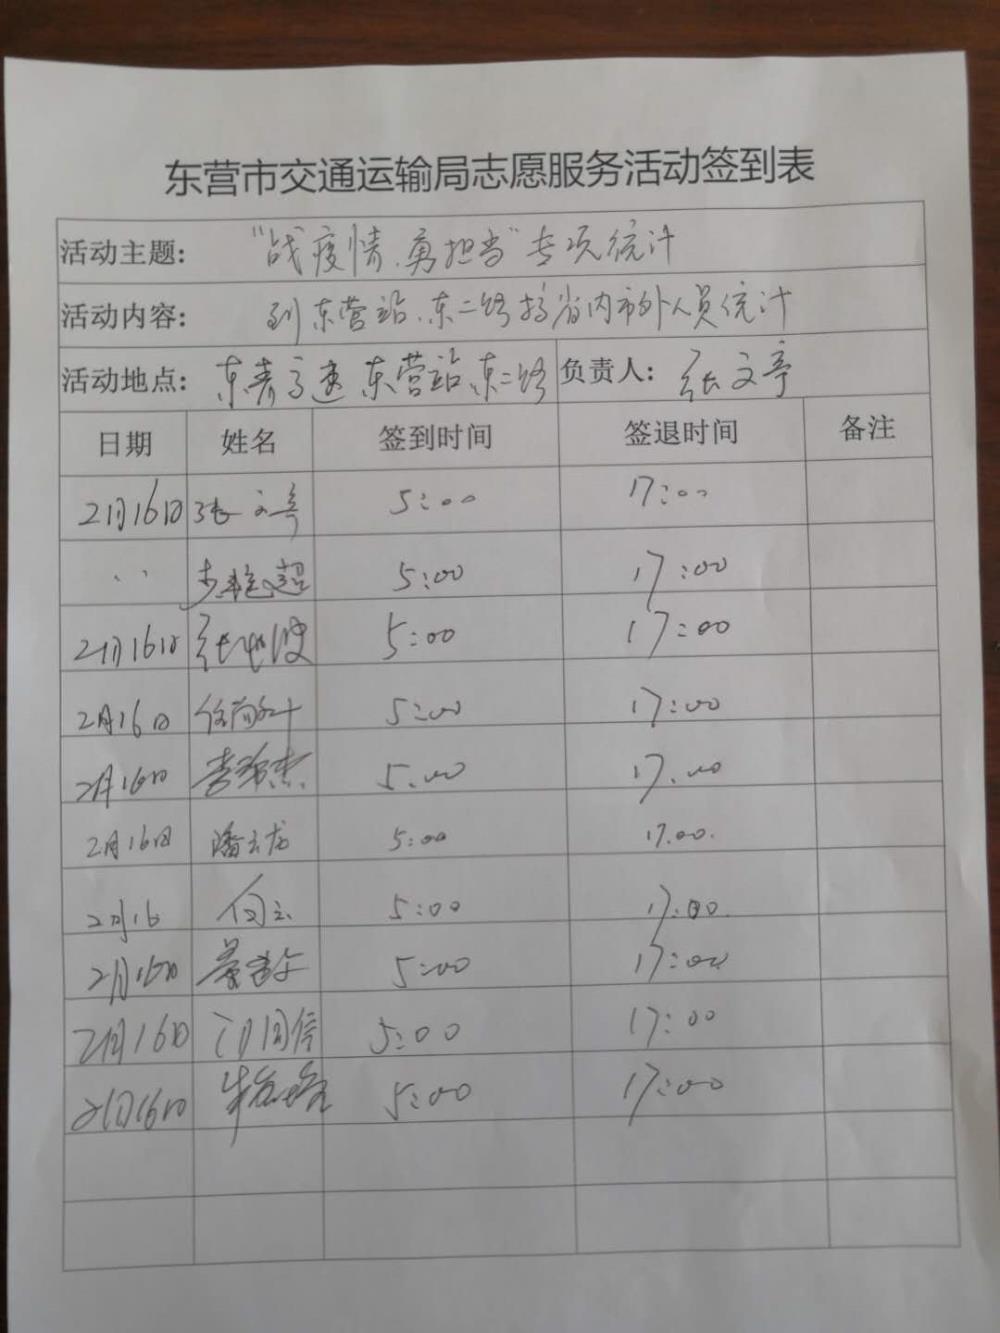 东营市交通运输局志愿服务活动签到表
活动主题: "战疫情、勇担当"专项统计
活动内容: 到东营站、东二路 省内市外人员统计
活动地点: 东青高速 东营站 东二路 负责人: 张文亭
日期 姓名 签到时间 签退时间 备注
2月16日 张文亭 5:00 17:00
〃 超 5:00 17:00
2月16日 张 波 5:00 17:00
2月16日 5:00 17:00
2月16日 李 杰 5:00 17:00
2月16日 潘云龙 5:00 17.00.
2月16 向云 5:00 17:00.
2月16日 5:00 17:00
2月16日 5:00 17:00
2月16日 5:00 17:00